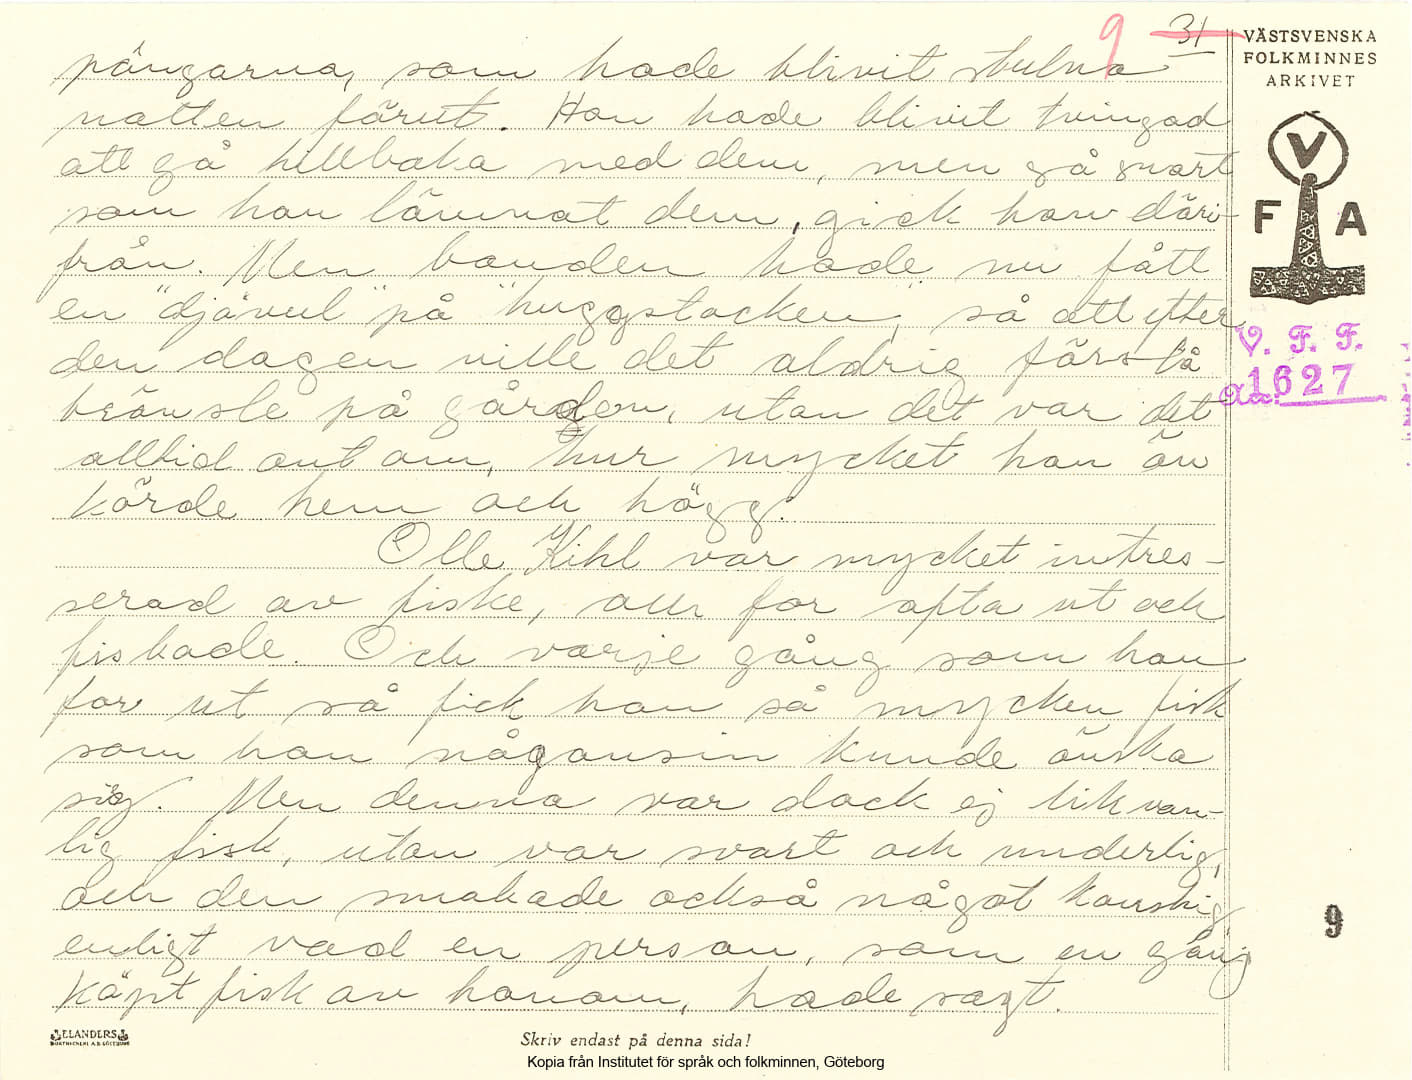 9 31
VÄSTSVENSKA
FOLKMINNES
ARKIVET
pängarna, som hade blivit stulna
natten förut. Han hade blivit tvingad
att gå tillbaka med dem, men så snart
som han lämnat dem, gick han däri-
från. Men bonden hade nu fått
en "djävul" på "huggstacken", så att efter
den dagen ville det aldrig förslå
bränsle på gården, utan det var det
alltid ont om, hur mycket han än
körde hem och högg.
Olle Kihl var mycket intres-
serad av fiske, och for ofta ut och
fiskade. Och varje gång som han
for ut så fick han så mycken fisk
som han någonsin kunde önska
sig. Men denna var dock ej lik van-
lig fisk, utan var svart och underlig,
och den smakade också något konstig
enligt vad en person, som en gång
köpt fisk av honom, hade sagt.
V
F A
V. F. F.
Acc: 1627
9
ELANDERS
BOKTRYCKERI A.B. GÖTEBORG
Skriv endast på denna sida!
Kopia från Institutet för språk och folkminnen, Göteborg